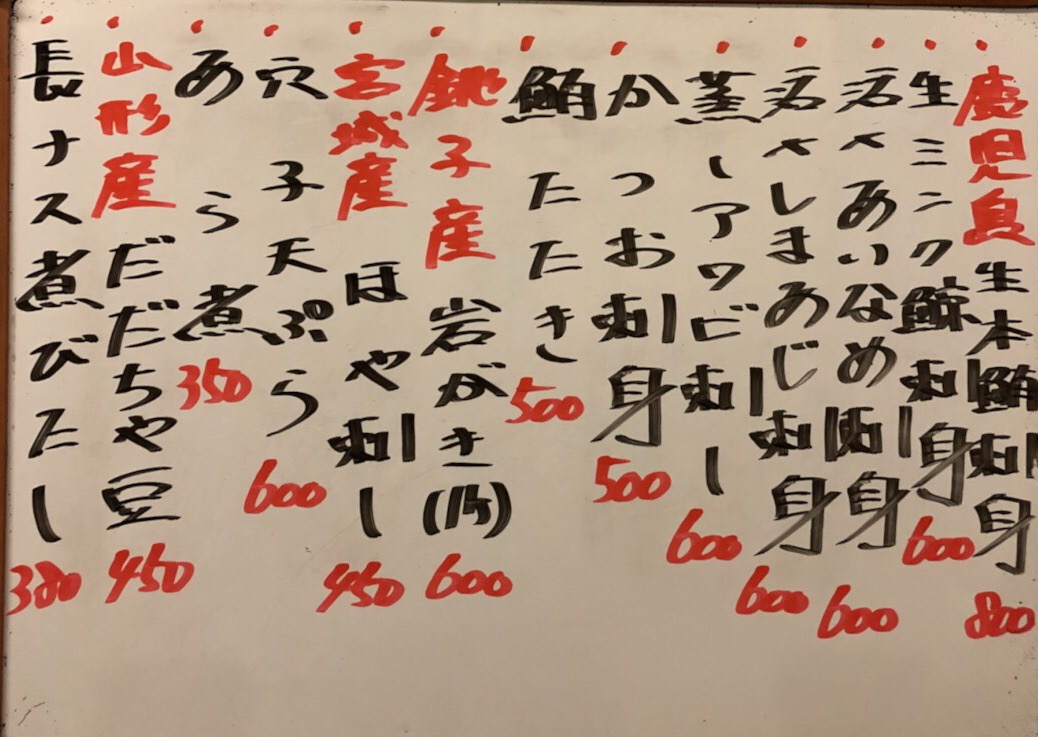 鹿児島生本鮪刺身 800
生ミンク鯨刺身 600
活〆あいなめ刺身 600
活〆しまあじ刺身 600
蒸しアワビ刺し 600
かつお刺身 500
鮪たたき 500
銚子産岩がき(1ケ) 600
宮城産ほや刺し 450
穴子天ぷら 600
あら煮 350
山形産だだちゃ豆 450
長ナス煮びたし 380